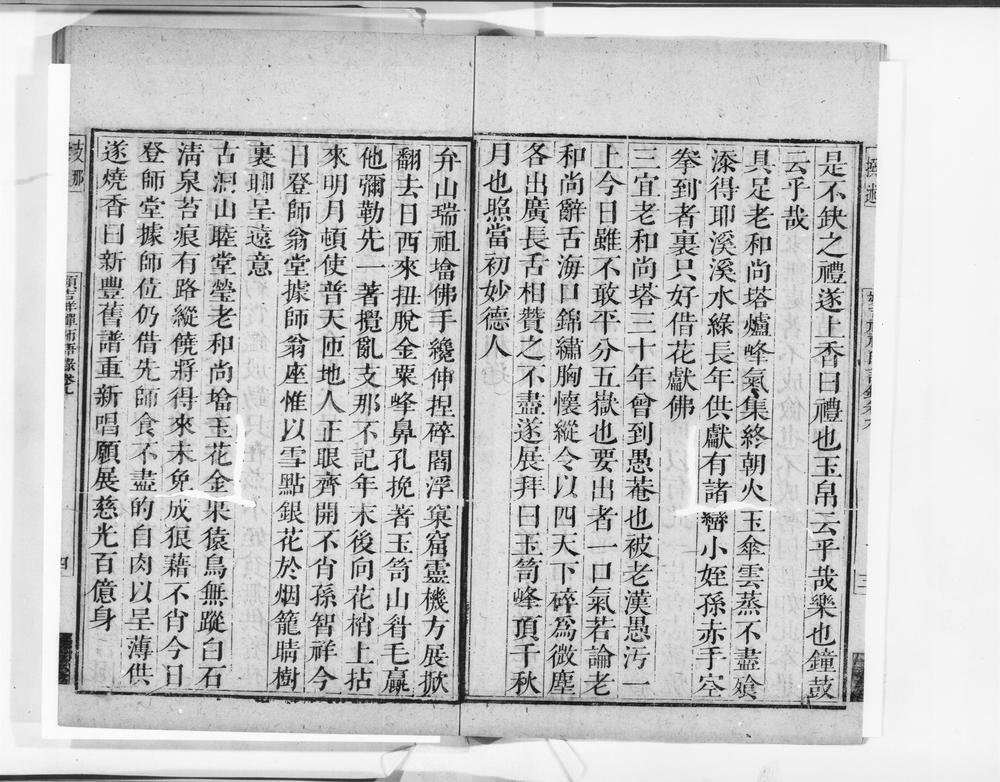 是不缺之禮遂上香曰禮也玉帛云乎哉樂也鐘鼓
云乎哉
具足老和尚塔爐峰氣集終朝火玉傘雲蒸不盡飡
添得耶溪溪水綠長年供獻有諸巒小姪孫赤手空
拳到者裏只好借花獻佛
三宜老和尚塔三十年曾到愚菴也被老漢愚污一
上今日雖不敢平分五嶽也要出者一口氣若論老
和尚辭舌海口錦繡胸懷縱令以四天下碎爲微塵
各出廣長舌相贊之不盡遂展拜曰玉笥峰頂千秋
月也照當初妙德人
弁山瑞祖塔佛手纔伸捏碎閻浮窠窟靈機方展掀
翻去日西來扭脫金粟峰鼻孔挽著玉笥山眉毛贏
他彌勒先一著攪亂支那不記年末後向花梢上拈
來明月頓使普天匝地人正眼齊開不肖孫智祥今
日登師翁堂據師翁座惟以雪點銀花於烟籠晴樹
裏聊呈遠意
古洞山睦堂瑩老和尚塔玉花金果猿鳥無蹤白石
清泉苔痕有路縱饒將得來未免成狼藉不肖今日
登師堂據師位仍借先師食不盡的自肉以呈薄供
遂燒香曰新豐舊譜重新唱願展慈光百億身
支那
頻吉祥禪師語錄卷九
四